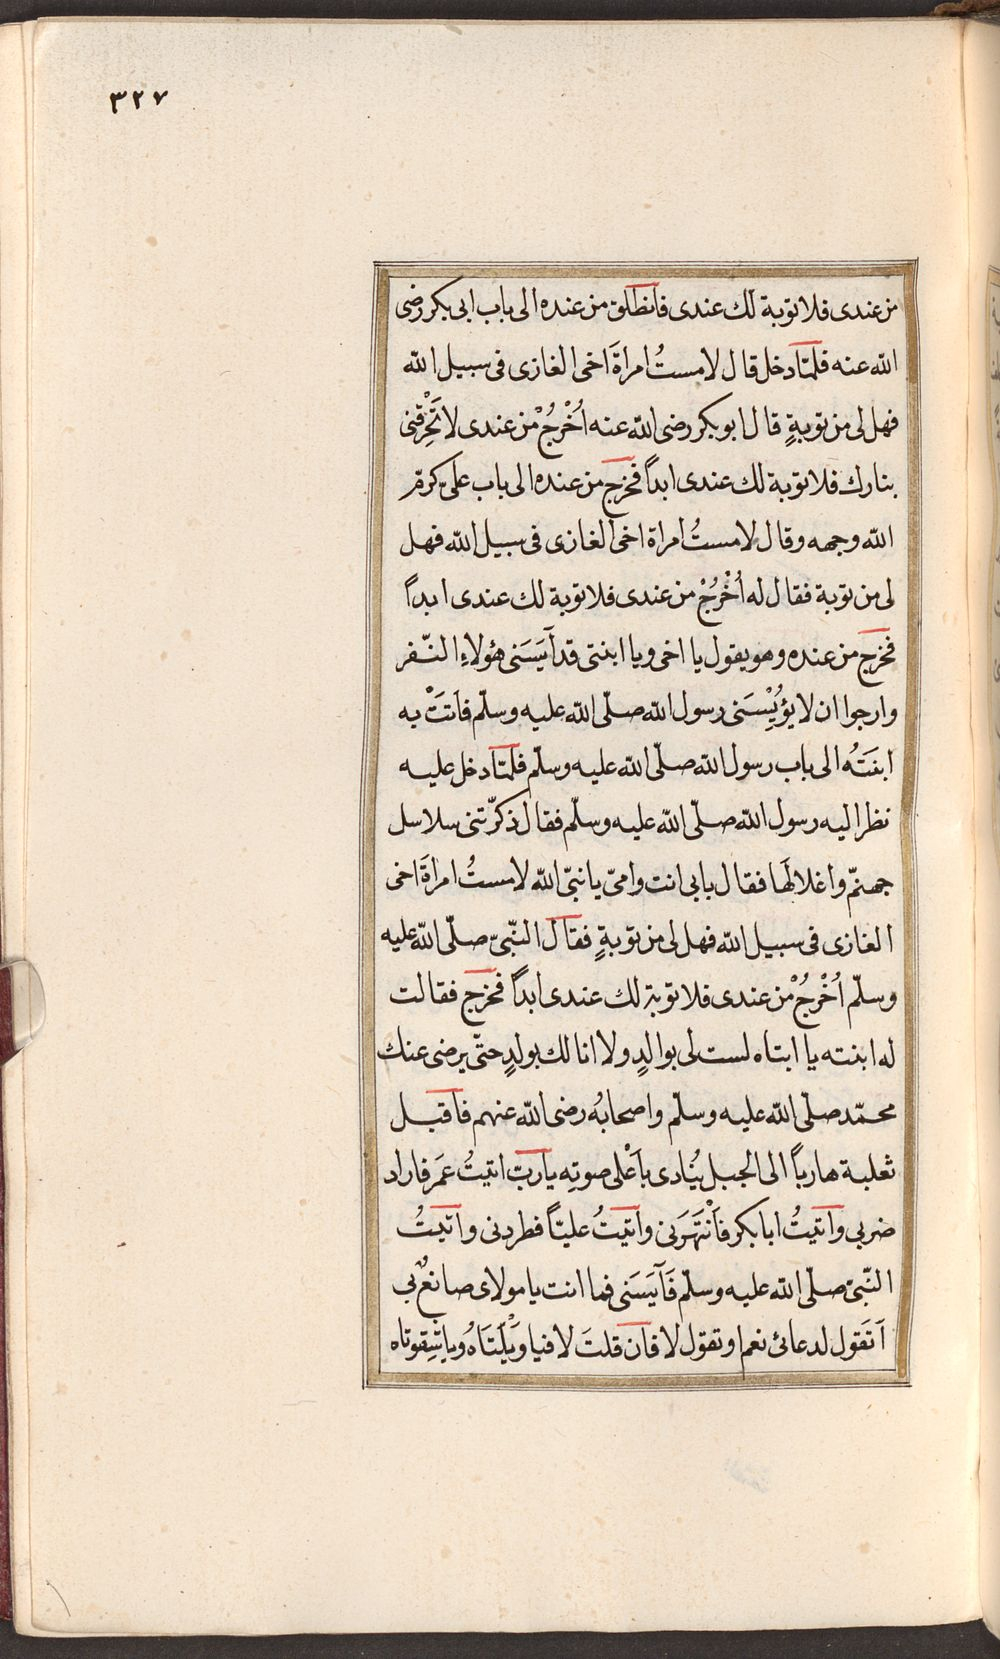 ٣٢٧
من عندى فلا توبة لك عندى فانطلق من عنده الى باب ابى بكر رضى
الله عنه فلمّا دخل قال لامستُ امراةَ اخى الغازى فى سبيل الله
فهل لى من توبةٍ قال ابو بكر رضى الله عنه اُخْرُجْ من عندى لا تَحْرِقْنى
بنارك فلا توبة لك عندى ابداً فخرج من عنده الى باب علىّ كرّم
الله وجهه وقال لامستُ امراة اخى الغازى فى سبيل الله فهل
لى من توبة فقال له اُخْرُجْ من عندى فلا توبة لك عندى ابداً
فخرج من عنده وهو يقول يا اخى ويا ابنتى قد آيَسَنى هؤلاءِ النّفر
وارجوا ان لا يؤُيِسَنى رسول الله صلّى الله عليه وسلّم فاَتَتْ به
ابنَتُه الى باب رسول الله صلّى الله عليه وسلّم فلمّا دخل عليه
نظر اليه رسول الله صلّى الله عليه وسلّم فقال ذكرّتنى سلاسل
جهنّم واغلالَها فقال بابى انت وامىّ يا نبىّ الله لامستُ امراةَ اخى
الغازى فى سبيل الله فهل لى من توبةٍ فقال النّبىّ صلّى الله عليه
وسلّم اُخْرُجْ من عندى فلا توبة لك عندى ابداً فخرج فقالت
له ابنته يا ابتاه لست لى بوالدٍ ولا انا لك بولدٍ حتّى يرضى عنك
محمّد صلّى الله عليه وسلّم واصحابُه رضى الله عنهم فاقبل
ثعلبة هارباً الى الجبل يُنادى باَعْلى صوتِه ياربّ اتيتُ عمَر فاراد
ضربى واتيتُ ابا بكر فاَنْتَهَرَنى واتيتُ عليّاً فطردنى واتيتُ
النّبىّ صلّى الله عليه وسلّم فَآيَسَنى فما انت يا مولاى صانعٌ بى
اَتَقول لدعائى نعم او تقول لا فان قلتَ لا فيا وَيْلَتَاهُ ويا شِقوتاه